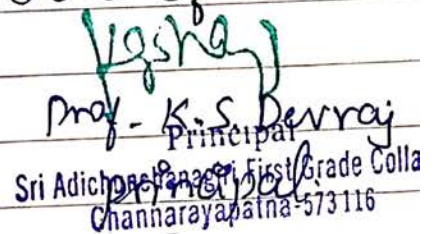 Prof - K.S. Devraj
Principal
Principal
Sri Adichunchanagiri First Grade Colla
Channarayapatna-573116